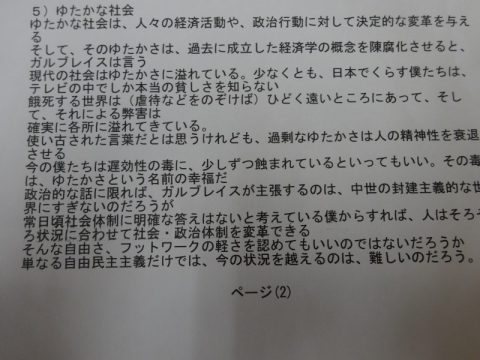 5）ゆたかな社会
ゆたかな社会は、人々の経済活動や、政治行動に対して決定的な変革を与え
る
そして、そのゆたかさは、過去に成立した経済学の概念を陳腐化させると、
ガルブレイスは言う
現代の社会はゆたかさに溢れている。少なくとも、日本でくらす僕たちは、
テレビの中でしか本当の貧しさを知らない
餓死する世界は（虐待などをのぞけば）ひどく遠いところにあって、そし
て、それによる弊害は
確実に各所に溢れてきている。
使い古された言葉だとは思うけれども、過剰なゆたかさは人の精神性を衰退
させる
今の僕たちは遅効性の毒に、少しずつ蝕まれているといってもいい。その毒
は、ゆたかさという名前の幸福だ
政治的な話に限れば、ガルブレイスが主張するのは、中世の封建主義的な世
界にすぎないのだろうが
常日頃社会体制に明確な答えはないと考えている僕からすれば、人はそろそ
ろ状況に合わせて社会・政治体制を変革できる
そんな自由さ、フットワークの軽さを認めてもいいのではないだろうか
単なる自由民主主義だけでは、今の状況を越えるのは、難しいのだろう。
ページ(2)